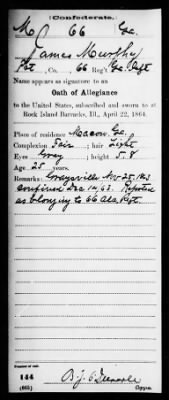 (Confederate.)
M 66 Ga.
James Murthy
Pvt, Co. , 66 Reg't Ga. Inft
Name appears as signature to an
Oath of Allegiance
to the United States, subscribed and sworn to at
Rock Island Barracks, Ill., April 22, 1864.
Place of residence Macon, Ga.
Complexion Fair ; hair Light
Eyes Gray ; height 5.8
Age 25 years.
Remarks: Graysville Nov 25, 1863
confined Dec 14, 63. Reported
as belonging to 66 Ala. Regt.
Number of roll:
144
(665) Copyist.